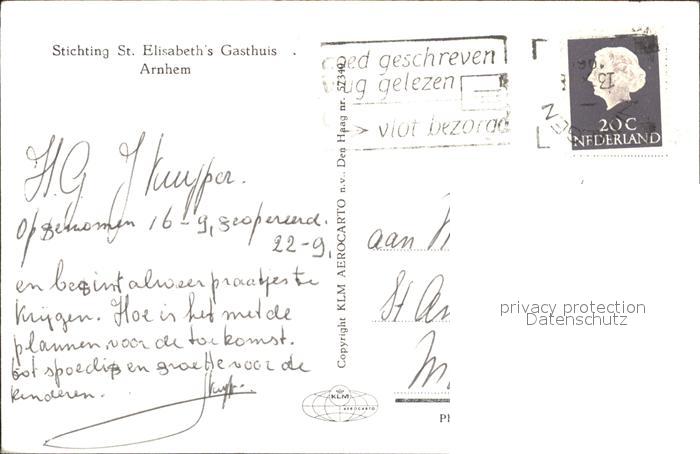 Stichting St. Elisabeth's Gasthuis
Arnhem
goed geschreven
vlug gelezen
vlot bezorgd
20C
NEDERLAND
H.G. J Kuyper.
Opgenomen 16-9, geopereerd.
22-9,
en begint alweer praatjes te
krijgen. Hoe is het met de
plannen voor de toekomst.
tot spoedig en groetje voor de
kinderen.
Copyright KLM AEROCARTO n.v., Den Haag nr. 57340
aan
St An
privacy protection
Datenschutz
KLM
AEROCARTO